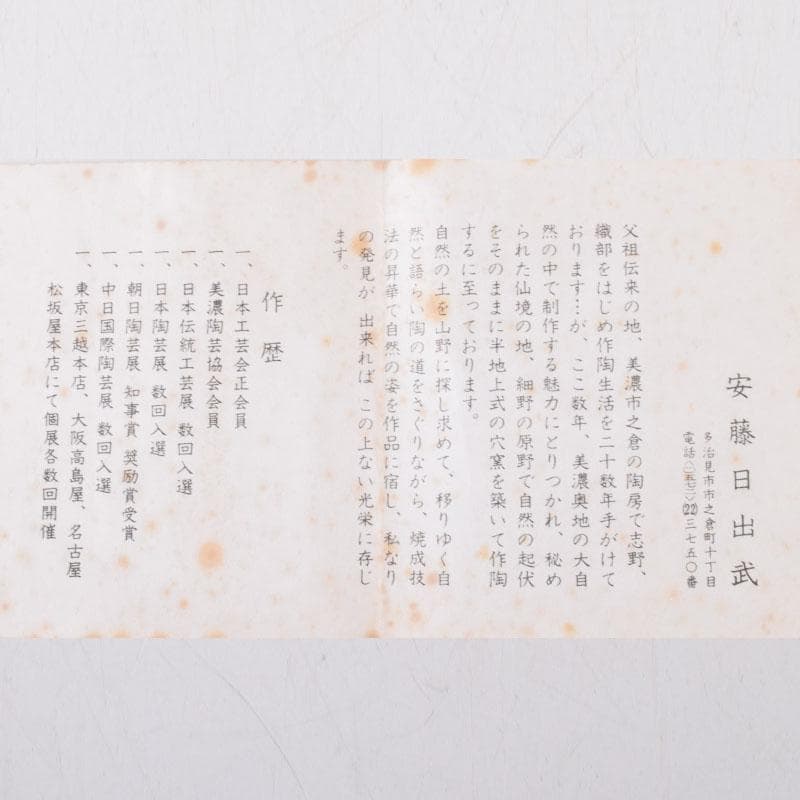 安藤日出武
多治見市市之倉町十丁目
電話〈〇五七二〉(22)三七五〇番
父祖伝来の地、美濃市之倉の陶房で志野、
織部をはじめ作陶生活を二十数年手がけて
おります…が、ここ数年、美濃奥地の大自
然の中で制作する魅力にとりつかれ、秘め
られた仙境の地、細野の原野で自然の起伏
をそのままに半地上式の穴窯を築いて作陶
するに至っております。
自然の土を山野に探し求めて、移りゆく自
然と語らい陶の道をさぐりながら、焼成技
法の昇華で自然の姿を作品に宿し、私なり
の発見が 出来れば この上ない光栄に存じ
ます。
作歴
一、日本工芸会正会員
一、美濃陶芸協会会員
一、日本伝統工芸展 数回入選
一、日本陶芸展 数回入選
一、朝日陶芸展 知事賞 奨励賞受賞
一、中日国際陶芸展 数回入選
一、東京三越本店、大阪高島屋、名古屋
松坂屋本店にて個展各数回開催